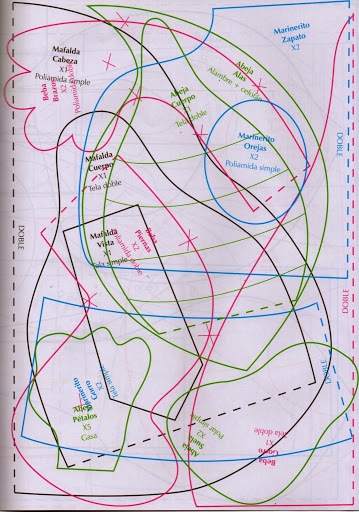 Marinerito
Zapato
X2
Mafalda
Cabeza
X1
Poliamida simple
Beba
Brazos
X2
Poliamida doble
Abeja
Alas
Alambre + celofán
Abeja
Cuerpo
X1
Tela doble
Marinerito
Orejas
X2
Poliamida simple
Mafalda
Cuerpo
X1
Tela doble
Mafalda
Vista
X1
Tela simple
Beba
Piernas
X2
Poliamida doble
DOBLE
DOBLE
DOBLE
DOBLE
Marinerito
Gorro
X2
Tela simple
Abeja
Pétalos
X5
Gasa
Abeja
Suela
X2
Polar simple
Beba
Gorro
X1
Tela doble